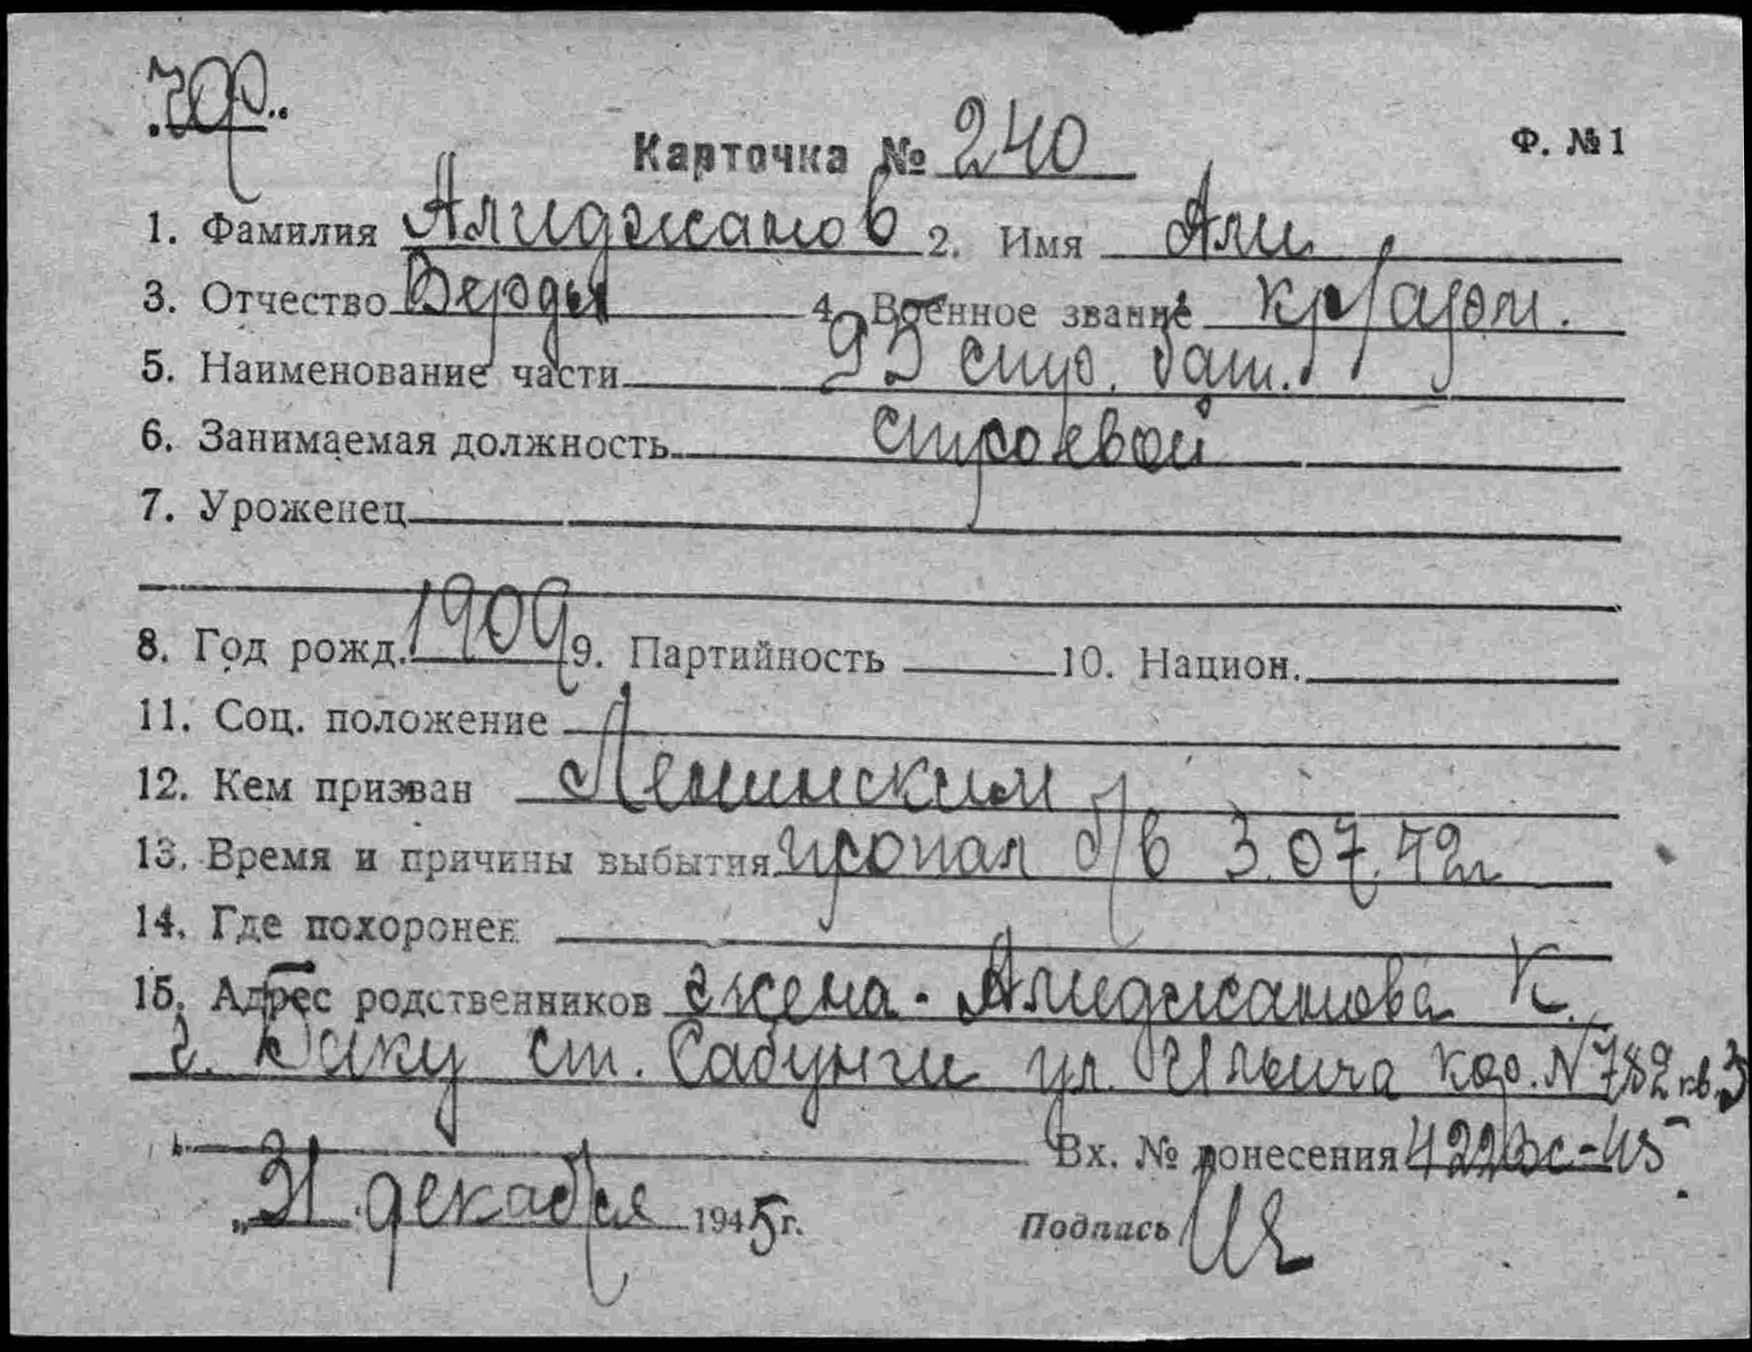 Карточка № 240
Ф. № 1
1. Фамилия Алиджанов 2. Имя Али
3. Отчество Верды 4. Военное звание кр/арм.
5. Наименование части 95 стр. бат.
6. Занимаемая должность строевой
7. Уроженец
8. Год рожд. 1909 9. Партийность 10. Национ.
11. Соц. положение
12. Кем призван Ленинским
13. Время и причины выбытия пропал б/в 3.07.42г
14. Где похоронен
15. Адрес родственников жена - Алиджанова К.
г. Баку ст. Сабунчи ул. Ильича кор. N 782 кв. 3
Вх. № донесения 422 с-45
„31 декабря 1945 г.
Подпись